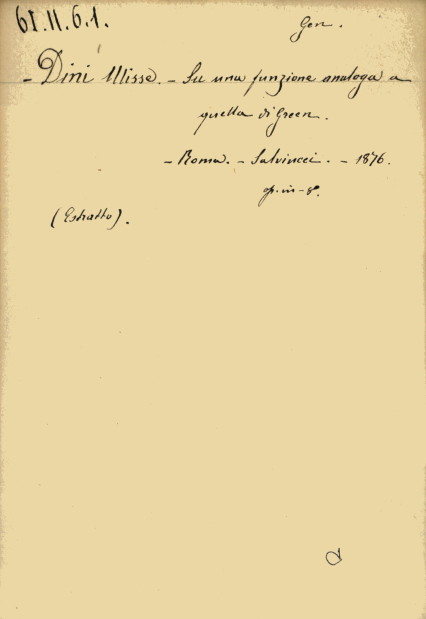 61.11.6.1.
Gen.
- Dini Ulisse. - Su una funzione analoga a
quella di Green.
- Roma. - Salviucci. - 1876.
op. in-8º.
(Estratto).